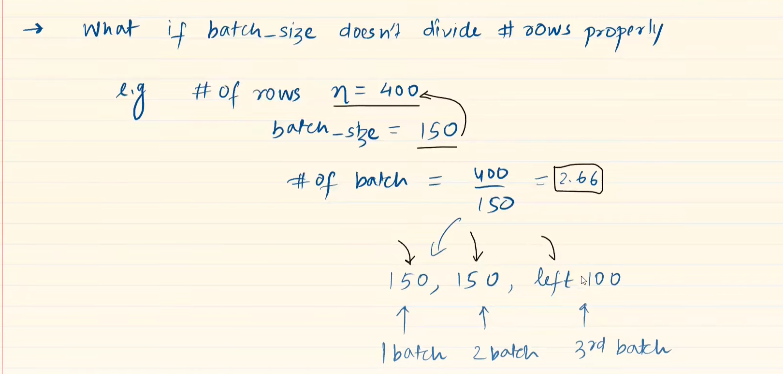 → What if batch_size doesn't divide # rows properly
e.g # of rows n = 400
batch_size = 150
# of batch = 400/150 = 2.66
150, 150, left 100
1 batch 2 batch 3rd batch